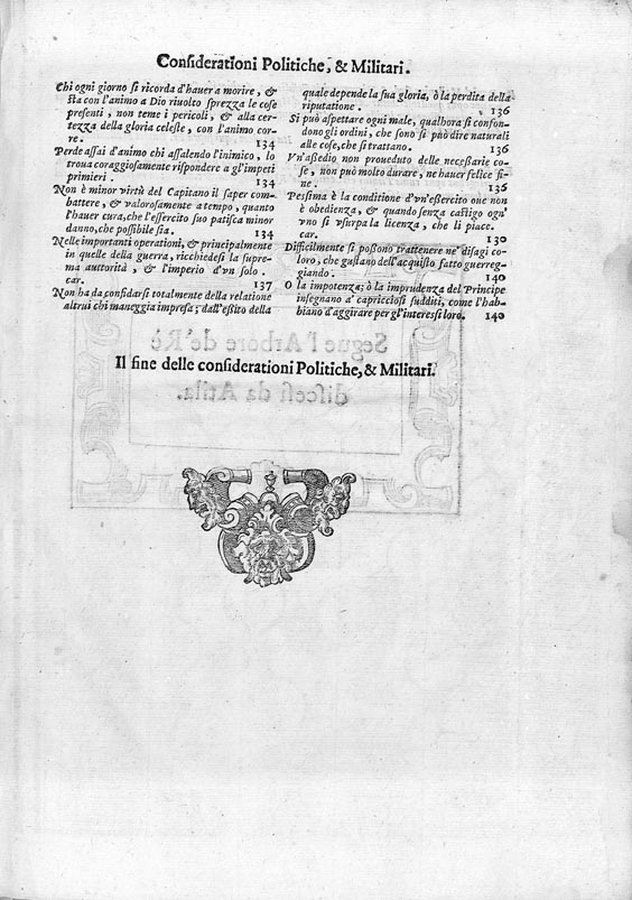 Considerationi Politiche, & Militari.
Chi ogni giorno si ricorda d'hauer a morire, &
sta con l'animo a Dio riuolto sprezza le cose
presenti, non teme i pericoli, & alla cer-
tezza della gloria celeste, con l'animo cor-
re. 134
Perde assai d'animo chi assalendo l'inimico, lo
troua coraggiosamente rispondere a gl'impeti
primieri. 134
Non è minor virtù del Capitano il saper com-
battere, & valorosamente a tempo, quanto
l'hauer cura, che l'essercito suo patisca minor
danno, che possibile sia. 134
Nelle importanti operationi, & principalmente
in quelle della guerra, ricchiedesi la supre-
ma auttorità, & l'imperio d'vn solo.
car. 137
Non ha da confidarsi totalmente della relatione
altrui chi maneggia impresa; dall'esito della
quale depende la sua gloria, ò la perdita della
riputatione. 136
Si può aspettare ogni male, qualhora si confon-
dono gli ordini, che sono si può dire naturali
alle cose, che si trattano. 136
Vn'assedio non proueduto delle necessarie co-
se, non può molto durare, ne hauer felice fi-
ne. 136
Pessima è la conditione d'vn'essercito oue non
è obedienza, & quando senza castigo ogn'
vno si vsurpa la licenza, che li piace.
car. 130
Difficilmente si possono trattenere ne' disagi co-
loro, che gustano dell'acquisto fatto guerreg-
giando. 140
O la impotenza; ò la imprudenza del Principe
insegnano a' capricciosi sudditi, come l'hab-
biano d'aggirare per gl'interessi loro. 140
Segue l'Arbore de' Rè
Il fine delle considerationi Politiche, & Militari.
discesi da Atila.